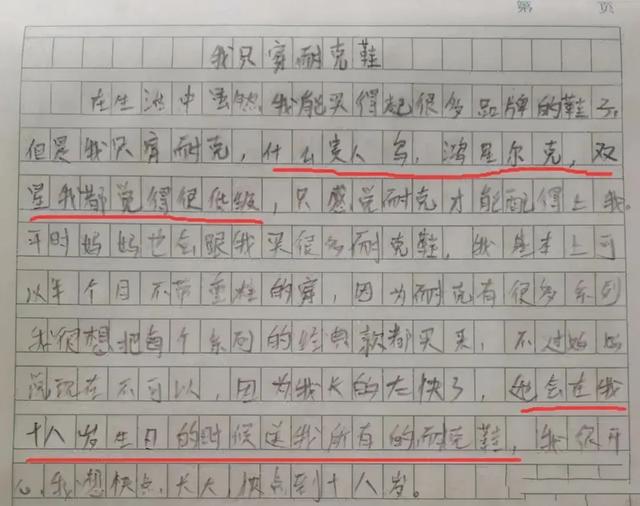 第 页
我只穿耐克鞋
在生活中虽然我能买得起很多品牌的鞋子,
但是我只穿耐克,什么贵人鸟,鸿星尔克,双
星我都觉得很低级,只感觉耐克才能配得上我。
平时妈妈也会跟我买很多耐克鞋,我基本上可
以半个月不带重柱的穿,因为耐克有很多系列
我很想把每个系列的经典款都买来,不过妈妈
说现在不可以,因为我长的太快了,她会在我
十八岁生日的时候送我所有的耐克鞋,我很开
心,我想快点长大,快点到十八岁。